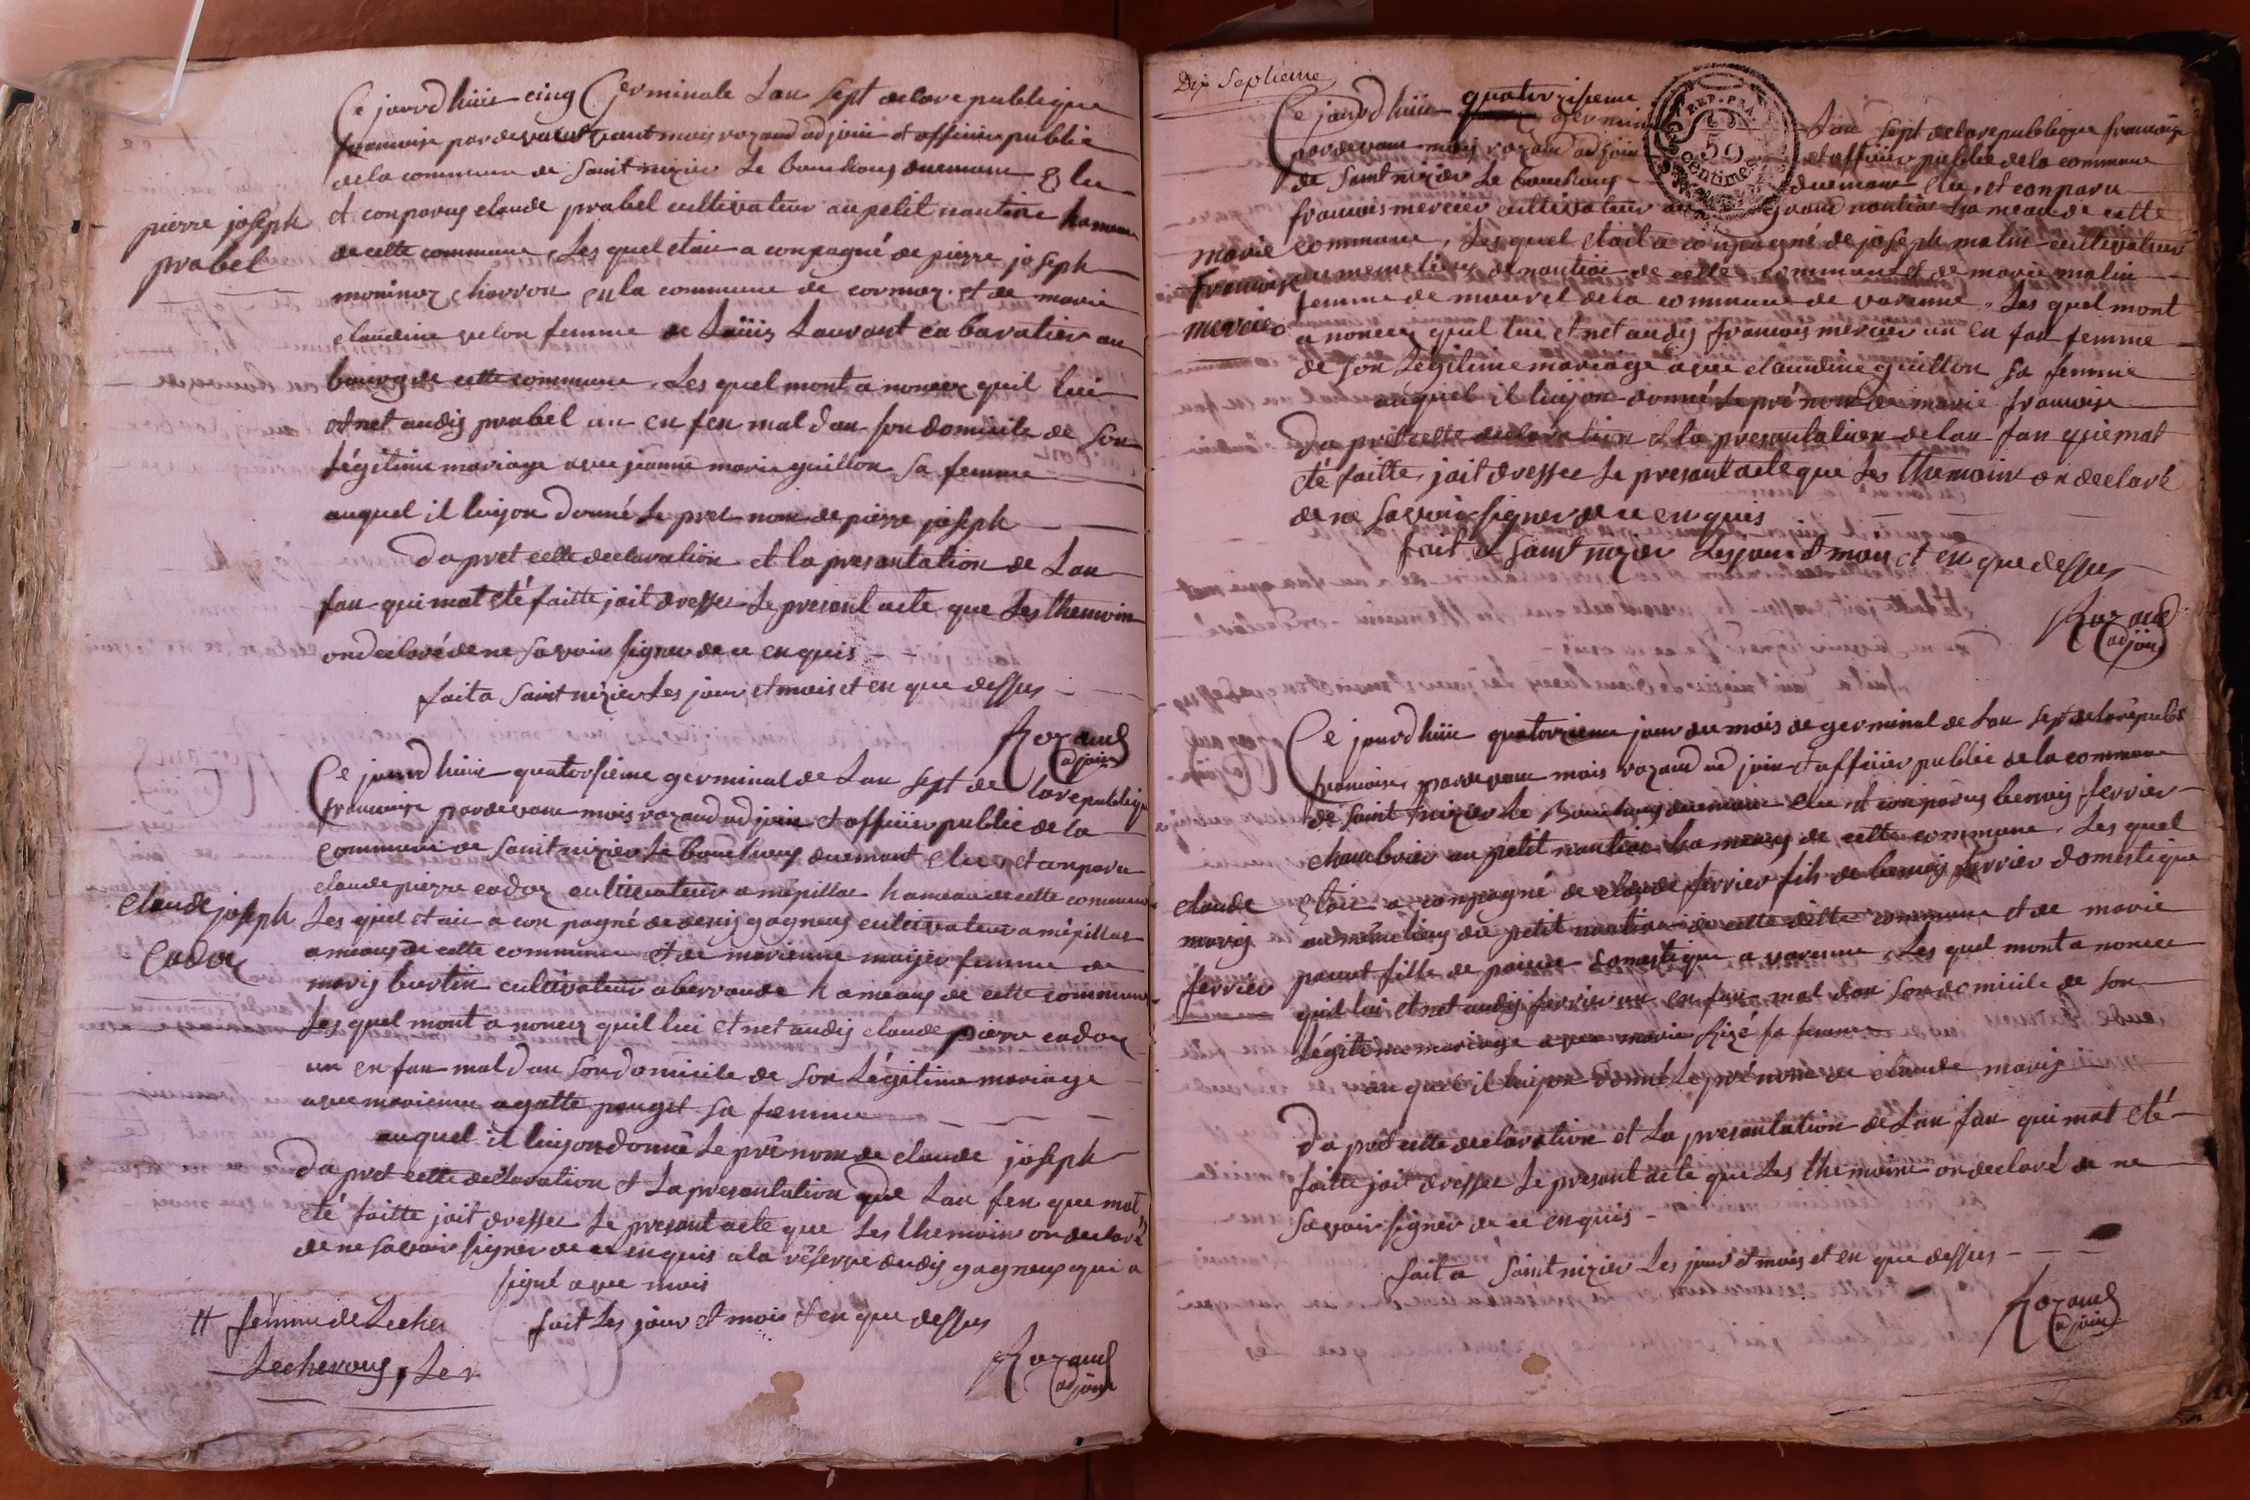 Ce jourd huii cinq Germinale Lan sept delare publique
francoise pardevant mois rozand adjoin et officier public
dela commune de saint nizier Le bouchoug duemant Elu
pierre joseph
prabel
et conparus claude prabel cultivateur au petit nantine hameau
de cette commune, Les quel etait a conpagné de pierre joseph
moninoz charron en la commune de cormoz et de marie
claudine velon femme de Loüis Lauvant cabaratier au
bourg de cette commune. Les quel mont a noncez quil lui
et net audis prabel un en fen mal dan son domicile de son
Légitime mariage avec jeanne marie guillon sa femme
auquel il luijon donné Le pret nom de pierre joseph
Da pret cette declaration et la presantation de Lan
fan qui mat eté faitte jait dresser Le presant acte que Les themoin
on declaré de ne savoir signer de ce en quis
fait a saint nizier Les jour et mois et en que dessus
Rozand
adjoin
Ce jourd huii quatorsieme germinal de Lan sept de larepublique
francoise pardevant mois rozand adjoin et officier public de la
commune de saint nizier Le bouchoug duemant elu et conparu
claude pierre cadoz cultivateur a mépillat hameau de cette commune
claude joseph
Cadoz
Les quel etait a con pagné de denis gagneux cultivateur a mépillat
ameaux de cette commune et de marienne moyjer femme de
maris burtin cultivateur a berrande hameaux de cette commune
Les quel mont a noncez quil lui et net audis claude pierre cadoz
un en fan mal dan son domicile de son Légitime mariage
avec marienne agatte pouget sa femme
auquel il luijon donné Le pré nom de claude joseph
Da pret cette déclaration et La presantation que Lan fen que mat
eté faitte jait dresser Le presant acte que Les themoin on declaré
de ne savoir signer de ce enquis ala réserve dudis gagneux qui a
signé avec mois
fait Les jour et mois et en que dessus
Rozand
adjoin
# femme de Lecher
Lecheroug, Le r
Dix Septieme
Ce jourd huii quatorzisieme germinal Lan sept delarepublique francoise
pardevant mois rozand adjoin et officier public dela commune
de saint nizier Le bouchoug duemant elu et conparu
francois mercier cultivateur au grand nantine hameau de cette
marie
francoise
mercier
commune, Les quel etait a conpagné de joseph matin cultivateur
au meme lieux de nantine de cette commune et de marie matin
femme de mauvel dela commune de varenne. Les quel mont
a noncez quil lui et net audis francois mercier un en fan femme
de son Légitime mariage avec claudine guillon sa femme
auquel il luijon donné le pré nom de marie francoise
Da pret cette declaration et la presantation de lan fan quiemat
eté faitte, jait dresser Le presant acte que Les themoin on declaré
de ne savoir signer de ce en quis
fait a saint nizier Les jour et mois et en que dessus
Rozand
adjoin
Ce jourd huii quatorzieme jour du mois de germinal de Lan sept de larépubl
francoise, pardevant mois rozand ad join et officier public de la commune
de saint nizier Le Bouchoug duemant elu et conparus benois ferrier
chambrier au petit nantine hameaux de cette commune. Les quel
claude
maris
ferrier
etait a conpagné de claude ferrier fils de benois ferrier domestique
au même lieux du petit nantine de cette ditte commune et de marie
pauvt fille de paisin domestique a varenne, Les quel mont a noncez
quil lui et net audis ferrier un en fan mal dan son domicile de son
Légitime mariage avec marie Rizé sa femme
au quel il luijon donné Le pré nom de claude maris
Da prèt cette declaration et La presantation de Lan fan qui mat eté
faitte jait dresser Le presant acte que Les themoin on declaré de ne
savoir signer de ce enquis
fait a saint nizier Les jour et mois et en que dessus
Rozand
adjoin
REP. FRA
50
Centimes